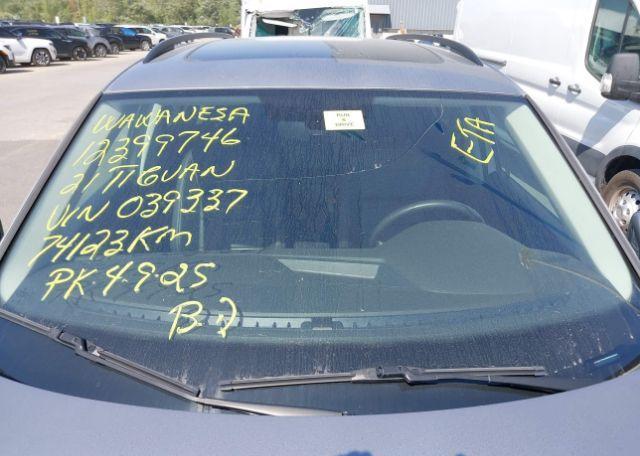 WAWANESA
12399746
21 TIGUAN
VIN 039337
74123 KM
PK. 4.9.25
RUN
&
DRIVE